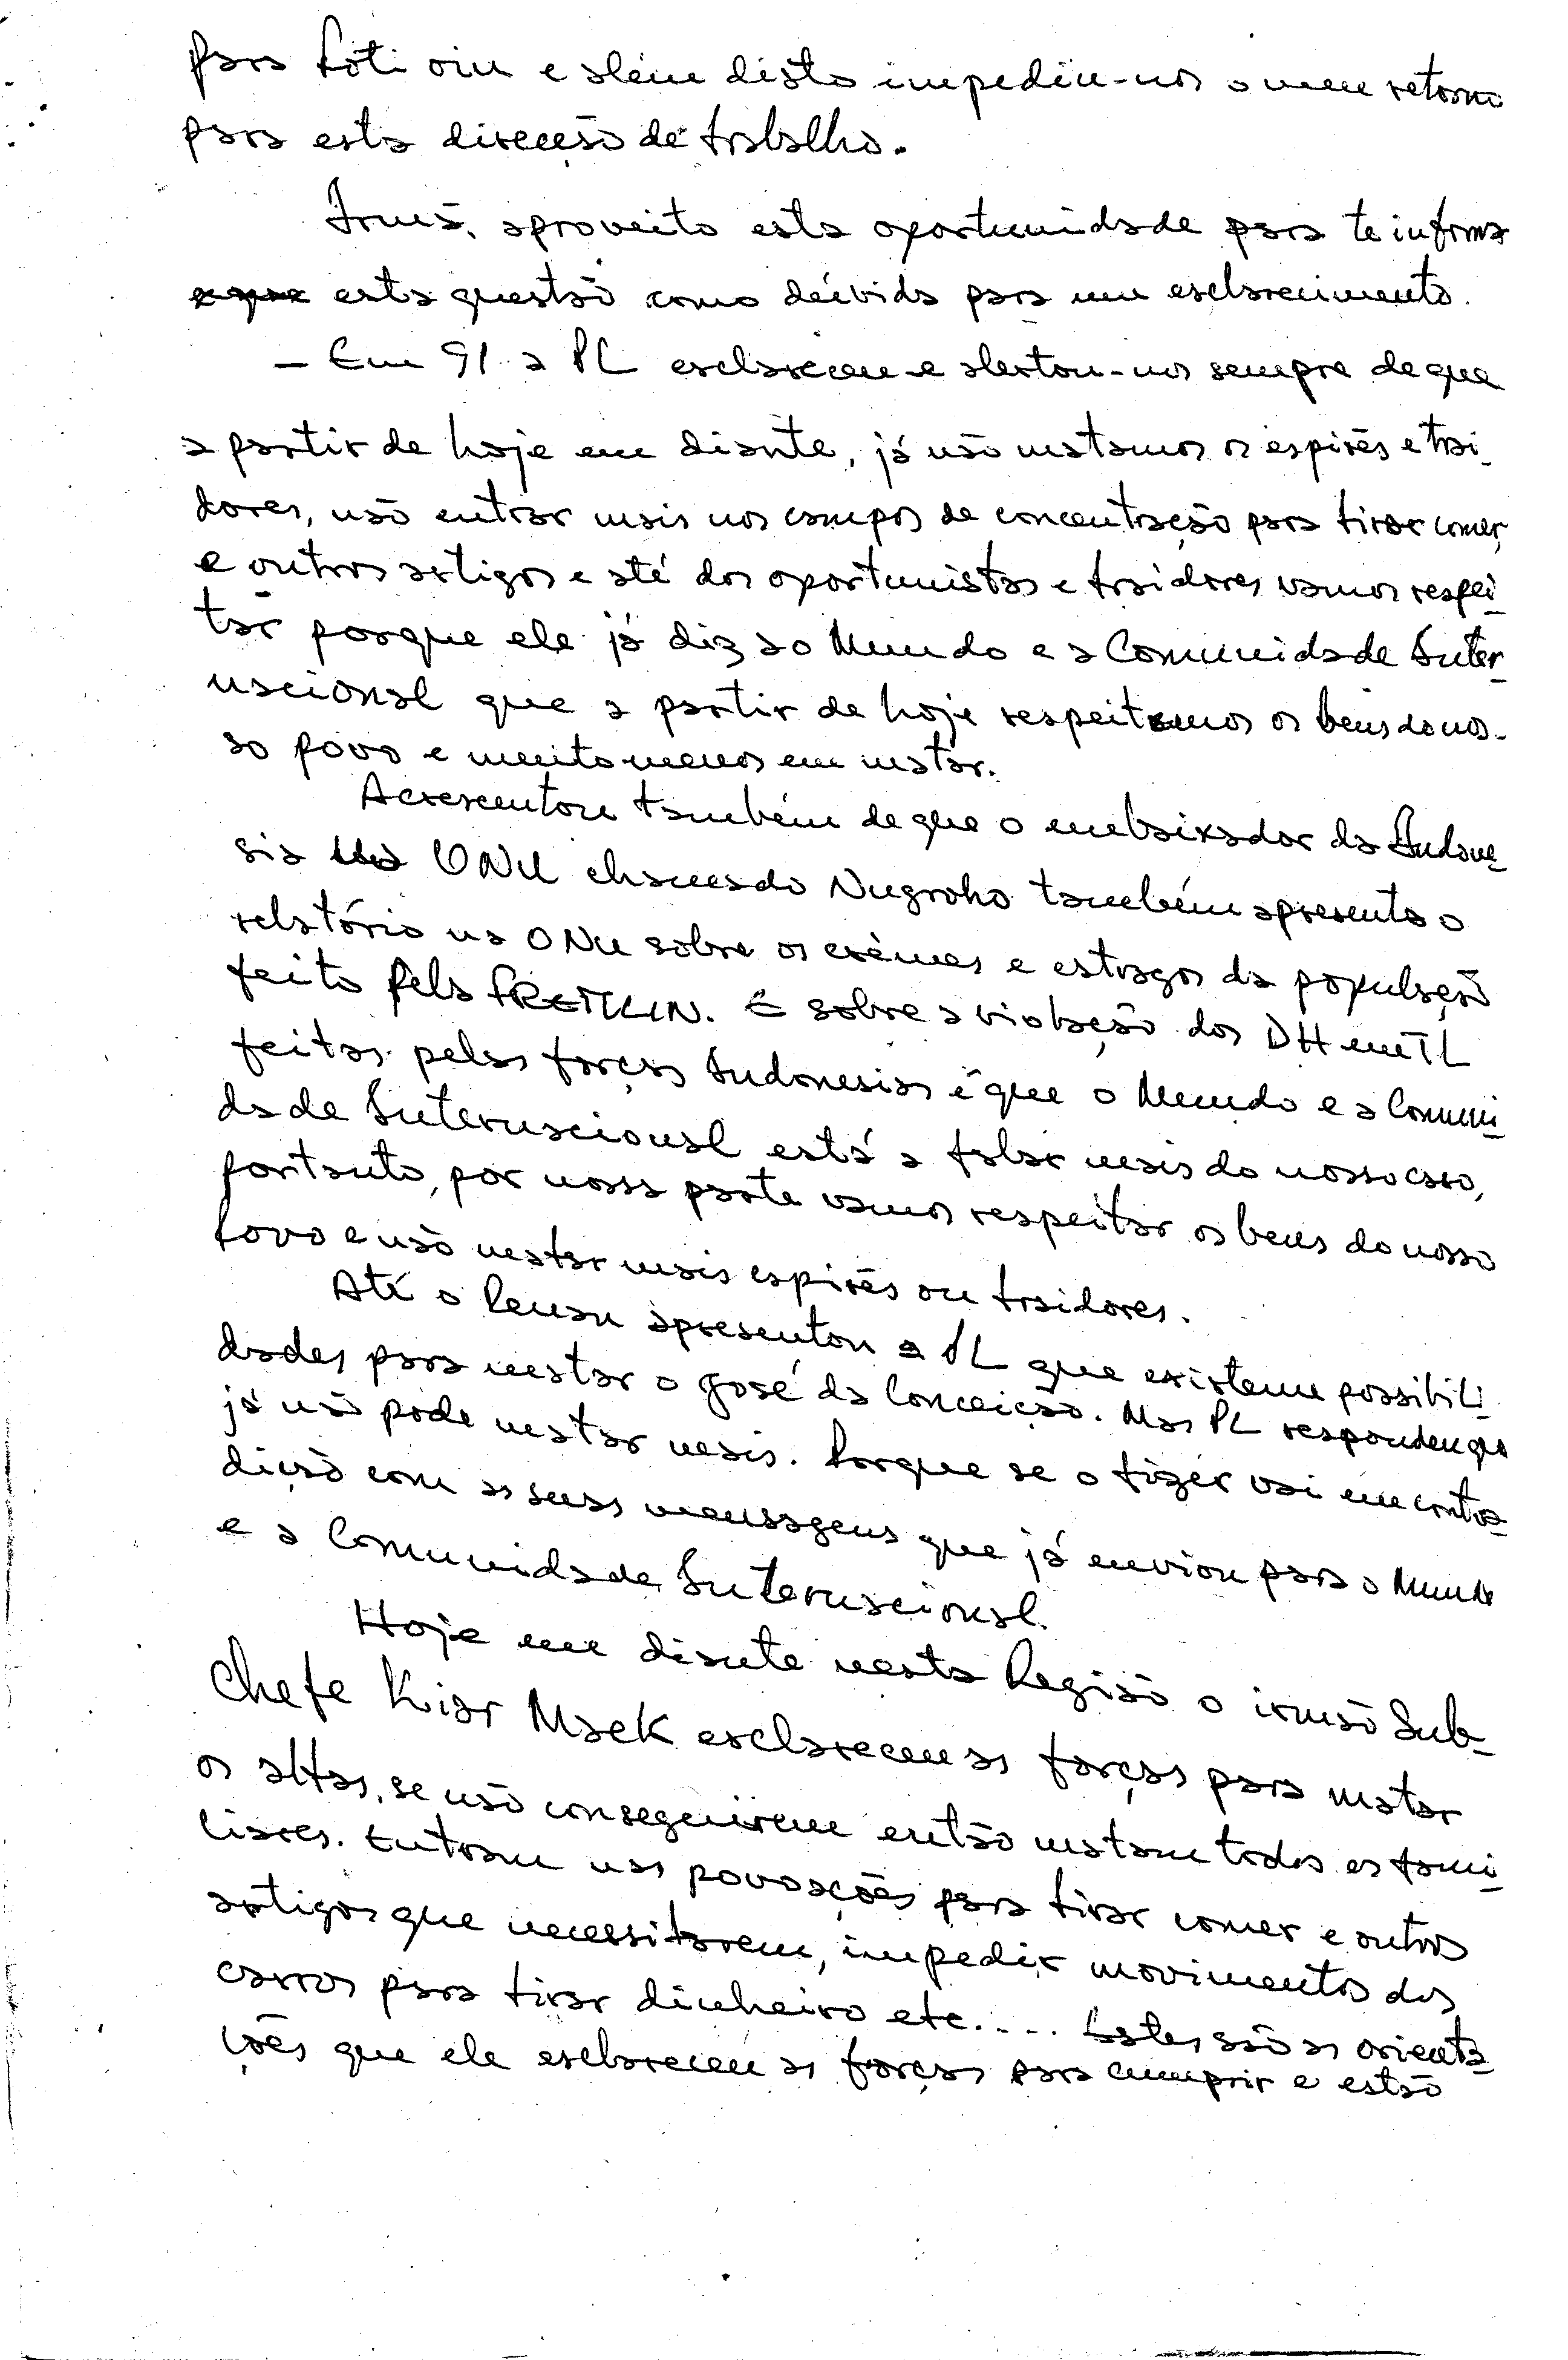 para Loti oin e além disto impediu-nos o meu retorno
para esta direcção de trabalho.
Irmã, aproveito esta oportunidade para te informa
esta questão como dúvida para um esclarecimento.
- Em 91 a PL esclareceu e alertou-nos sempre de que
a partir de hoje em diante, já não matamos os espiões e trai_
dores, não entrar mais nos campos de concentração para tirar comer,
e outros artigos e até dos oportunistas e traidores vamos respei_
tar porque ele já diz ao Mundo e a Comunidade Inter_
nacional que a partir de hoje respeitamos os bens do nos-
so povo e muito menos em matar.
Acrescentou também de que o embaixador da Indone_
sia na ONU chamado Nugroho também apresenta o
relatório na ONU sobre os crimes e estragos da população
feito pela FRETILIN. E sobre a violação dos DH em TL
feitas pelas forças Indonesias é que o Mundo e a Comuni_
dade Internacional está a falar mais do nosso caso,
portanto, por nossa parte vamos respeitar os bens do nosso
Povo e não matar mais espiões ou traidores.
Até o Lemsu apresentou a PL que existem possibili_
dades para matar o José da Conceição. Mas PL respondeu que
já não pode matar mais. Porque se o fizer vai em contra_
dição com as suas mensagens que já enviou para o Mundo
e a Comunidade Internacional.
Hoje em diante nesta Região o irmão Sub_
chefe Kiar Maek esclareceu as forças para matar
os altas, se não conseguirem então matam todos os fami_
liares. Entram nas povoações para tirar comer e outros
artigos que necessitarem, impedir movimentos dos
carros para tirar dinheiro etc.... Estes são as orienta_
ções que ele esclareceu as forças para cumprir e estão